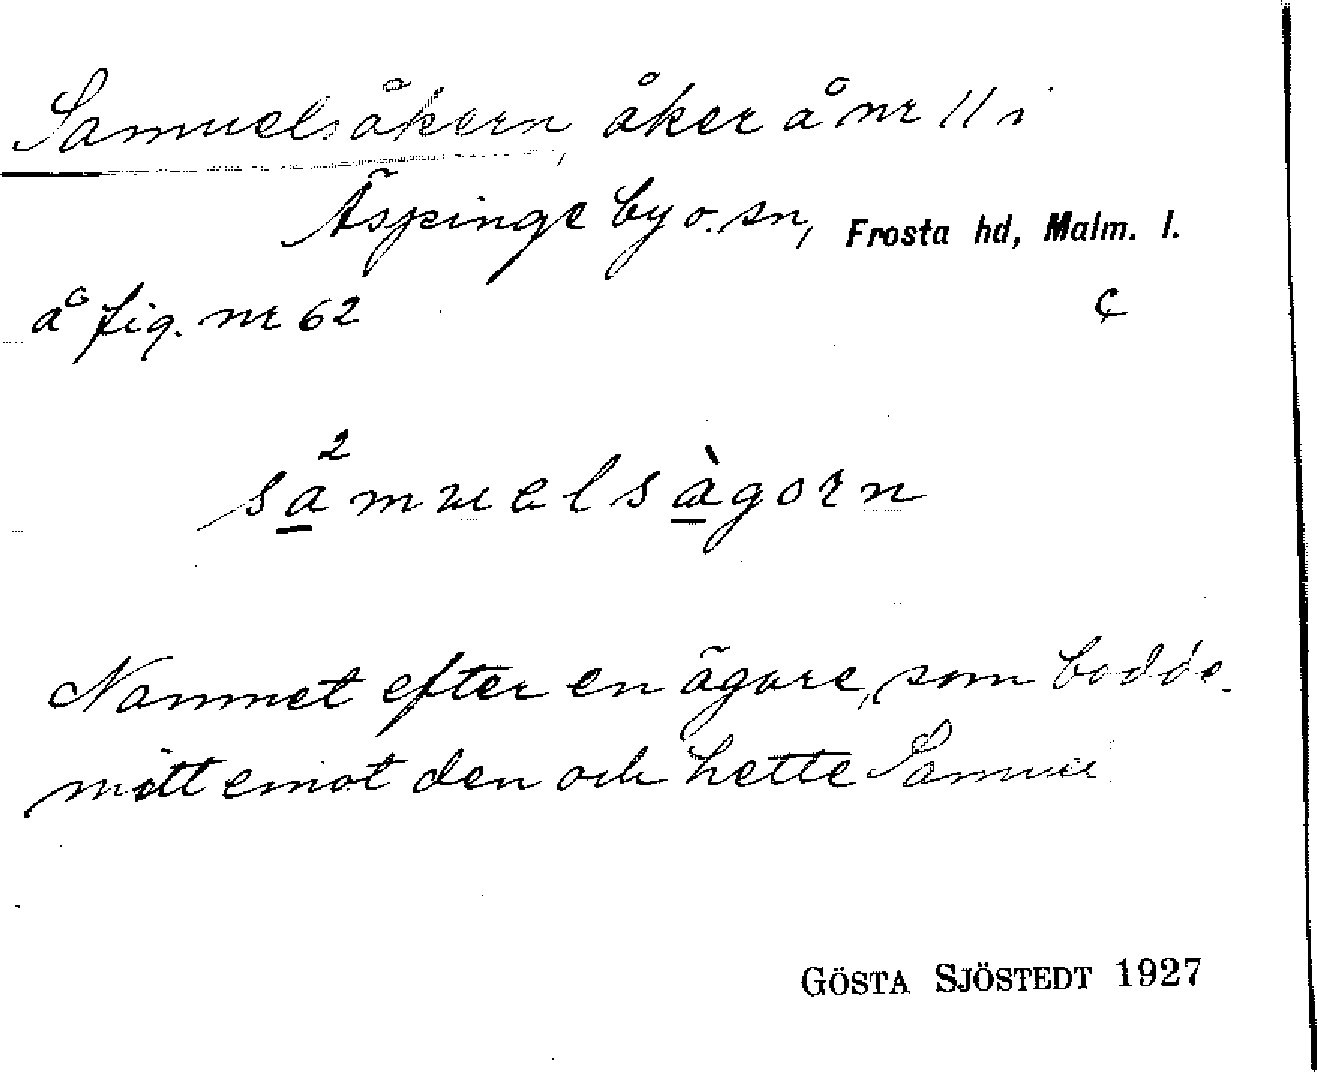 Samuelsåkern, åker å nr 11 i
Äspinge by o. sn, Frosta hd, Malm. l.
å fig. nr 62 C
sa²muelsàgorn
Namnet efter en ägare, som bodde
mitt emot den och hette Samuel
GÖSTA SJÖSTEDT 1927